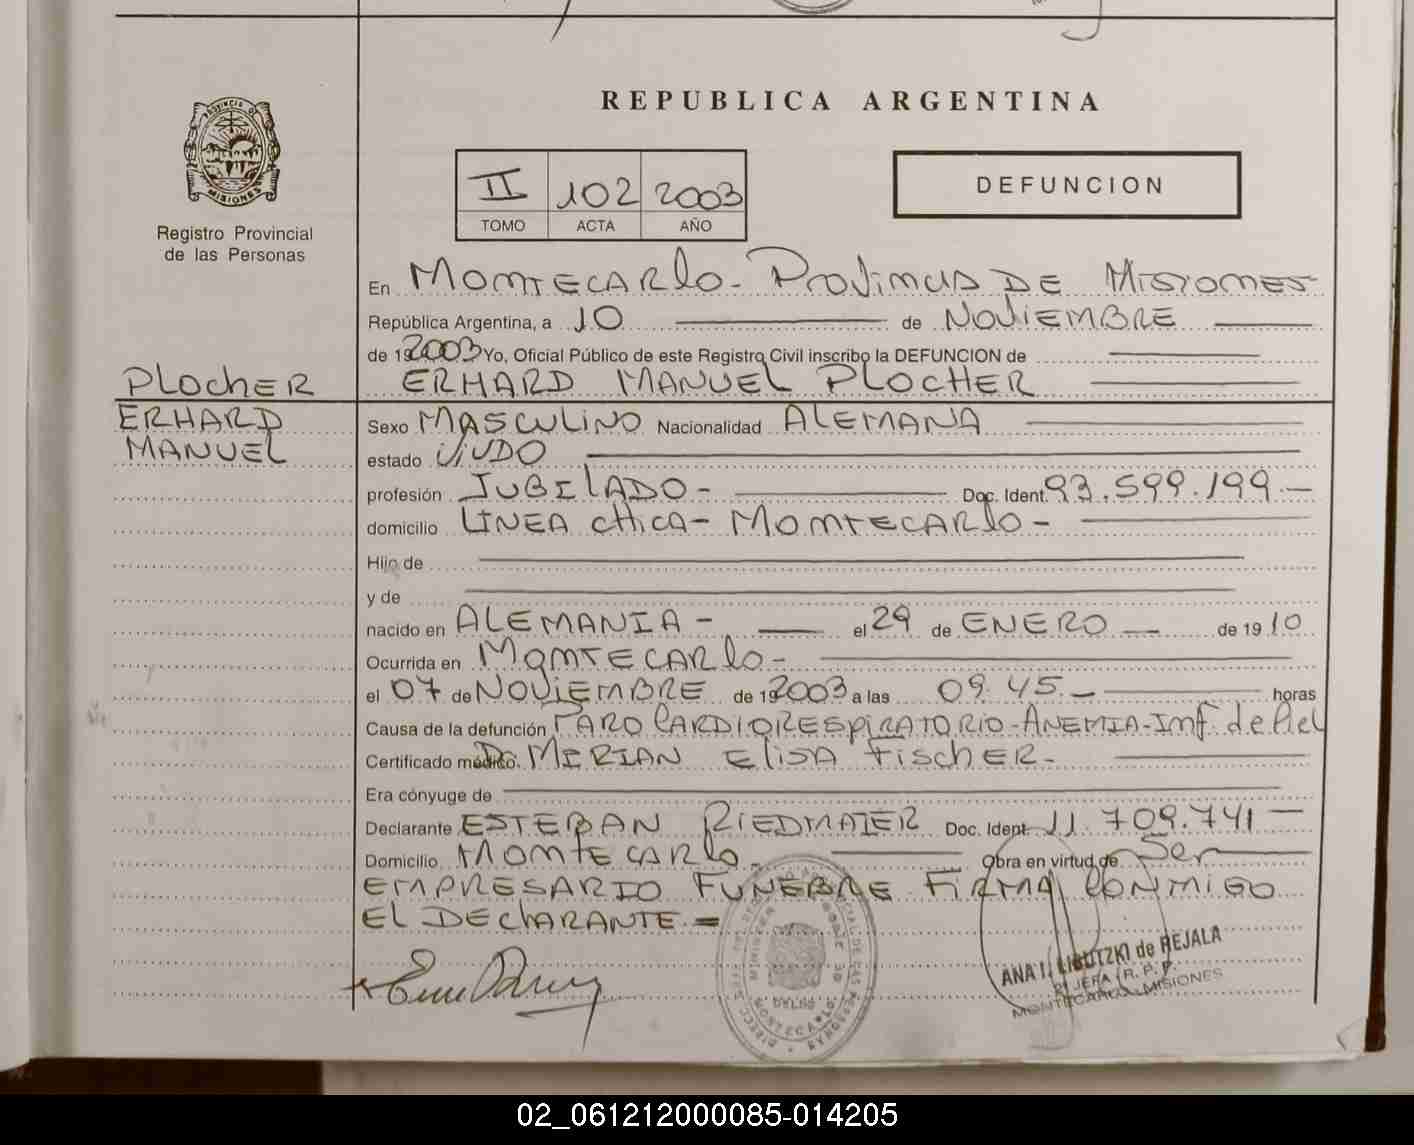 PROVINCIA DE
MISIONES
Registro Provincial
de las Personas
REPUBLICA ARGENTINA
II 102 2003
TOMO ACTA AÑO
DEFUNCION
En MONTECARLO - PROVINCIA DE MISIONES
República Argentina, a 10 de NOVIEMBRE
de 192003 Yo, Oficial Público de este Registro Civil inscribo la DEFUNCION de
ERHARD MANUEL PLOCHER
PLOCHER
ERHARD
MANUEL
Sexo MASCULINO Nacionalidad ALEMANA
estado VIUDO
profesión JUBILADO - Doc. Ident. 93.599.199 -
domicilio LINEA CHICA - MONTECARLO -
Hijo de
y de
nacido en ALEMANIA - el 29 de ENERO de 1910
Ocurrida en MONTECARLO -
el 07 de NOVIEMBRE de 192003 a las 09.45 - horas
Causa de la defunción PARO CARDIORESPIRATORIO - ANEMIA - Inf. de Piel
Certificado médico. Dr. MERIAN ELISA FISCHER -
Era cónyuge de
Declarante ESTEBAN RIEDMAIER Doc. Ident. 11.709.741 -
Domicilio MONTECARLO - Obra en virtud de Ser
EMPRESARIO FUNEBRE FIRMA CONMIGO
EL DECLARANTE =
ANA I. de REJALA
JEFA R. P. P.
MONTECARLO - MISIONES
02_061212000085-014205